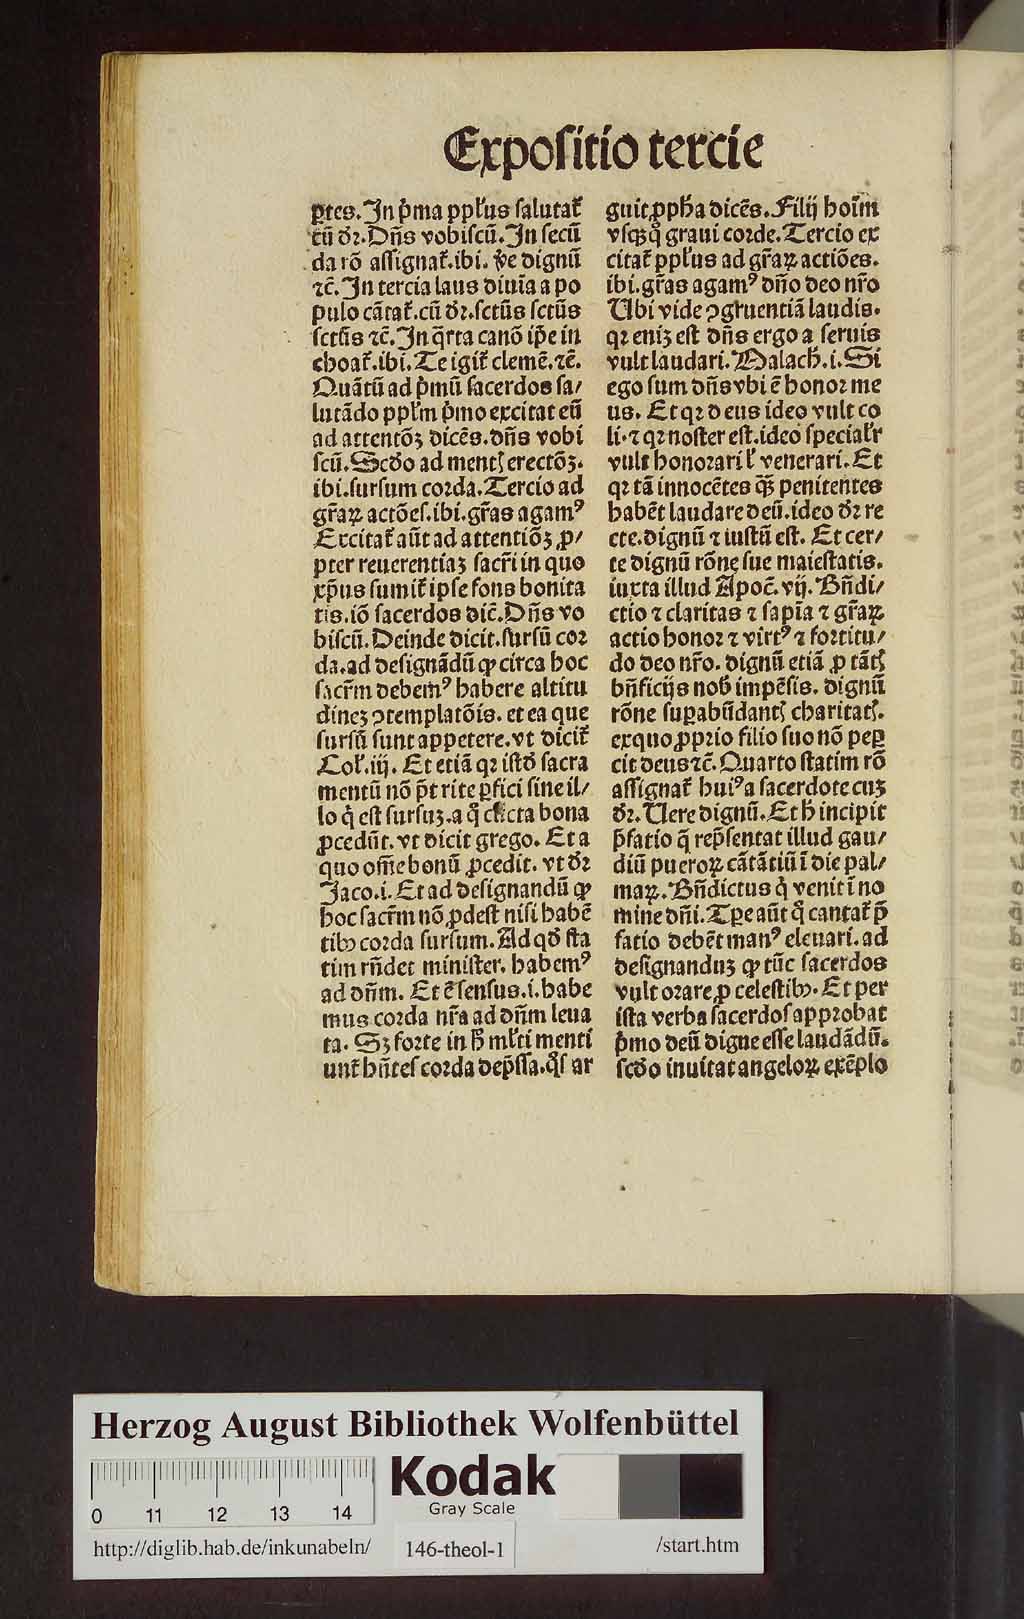 Expositio tercie
ꝑtes. In p̄ma ppl'us salutat᷑
cū dr̄. Dn̄s vobiscū. In secū
da rō assignat᷑. ibi. v̄e dignū
ꝛc̄. In tercia laus diuīa a po
pulo cātat᷑. cū dr̄. sctūs sctūs
sctūs ꝛc̄. In q̄rta canō ip̄e in
choat᷑. ibi. Te igit᷑ clemē. ꝛc̄.
Quātū ad p̄mū sacerdos sa/
lutādo ppl'm p̄mo excitat eū
ad attentōꝫ dicēs. dn̄s vobi
scū. Scd̄o ad mentꝭ erectōꝫ.
ibi. sursum corda. Tercio ad
gr̄aꝝ actōes. ibi. gr̄as agamꝰ
Excitat᷑ aūt ad attentiōꝫ ꝓ/
pter reuerentiaꝫ sacr̄i in quo
xp̄us sumit᷑ ipse fons bonita
tis. iō sacerdos dic̄. Dn̄s vo
biscū. Deinde dicit. sursū cor
da. ad designādū ꝙ circa hoc
sacr̄m debemꝰ habere altitu
dineꝫ ꝯtemplatōis. et ea que
sursū sunt appetere. vt dicit᷑
Col'. iij. Et etiā qꝛ istd̄ sacra
mentū nō pt̄ rite ꝑfici sine il/
lo q̇ est sursuꝫ. a qͦ cūcta bona
ꝓcedūt. vt dicit grego. Et a
quo om̄e bonū ꝓcedit. vt dr̄
Jaco. i. Et ad designandū ꝙ
hoc sacr̄m nō ꝓdest nisi habē
tibꝫ corda sursum. Ad qd̄ sta
tim rn̄det minister. habemꝰ
ad dn̄m. Et ē sensus. i. habe
mus corda nr̄a ad dn̄m leua
ta. Sꝫ forte in h̄ ml'ti menti
unt᷑ hn̄tes corda dep̄ssa. qͦs ar
guit ꝓph̄a dicēs. Filij hoīm
vsqꝫ qͦ graui corde. Tercio ex
citat᷑ ppl'us ad gr̄aꝝ actiōes.
ibi. gr̄as agamꝰ dn̄o deo nr̄o
Ubi vide ꝯgruentiā laudis.
qꝛ eniꝫ est dn̄s ergo a seruis
vult laudari. Malach̄. i. Si
ego sum dn̄s vbi ē honor me
us. Et qꝛ deus ideo vult co
li. ⁊ qꝛ noster est. ideo special'r
vult honorari l' venerari. Et
qꝛ tā innocētes qꝫ̄ penitentes
habēt laudare deū. ideo dr̄ re
cte. dignū ⁊ iustū est. Et cer/
te dignū rōne sue maiestatis.
iuxta illud Apoc̄. vij. Bn̄di/
ctio ⁊ claritas ⁊ sapīa ⁊ gr̄aꝝ
actio honor ⁊ virtꝰ ⁊ fortitu/
do deo nr̄o. dignū etiā ꝓ tātꝭ
bn̄ficijs nob̄ impēsis. dignū
rōne suꝑabūdantꝭ charitatꝭ.
ex quo ꝓprio filio suo nō peꝑ
cit deus ꝛc̄. Quarto statim rō
assignat᷑ huiꝰ a sacerdote cuꝫ
dr̄. Uere dignū. Et h̄ incipit
p̄fatio q̄ rep̄sentat illud gau/
diū pueroꝝ cātātiū ī die pal/
maꝝ. Bn̄dictus q̇ venit ī no
mine dn̄i. Tꝑe aūt qͦ cantat᷑ p̄
fatio debēt manꝰ eleuari. ad
designanduꝫ ꝙ tūc sacerdos
vult orare ꝓ celestibꝫ. Et per
ista verba sacerdos approbat
p̄mo deū digne esse laudādū.
scd̄o inuitat angeloꝝ exēplo
Herzog August Bibliothek Wolfenbüttel
Kodak
Gray Scale
0 11 12 13 14
http://diglib.hab.de/inkunabeln/ 146-theol-1 /start.htm